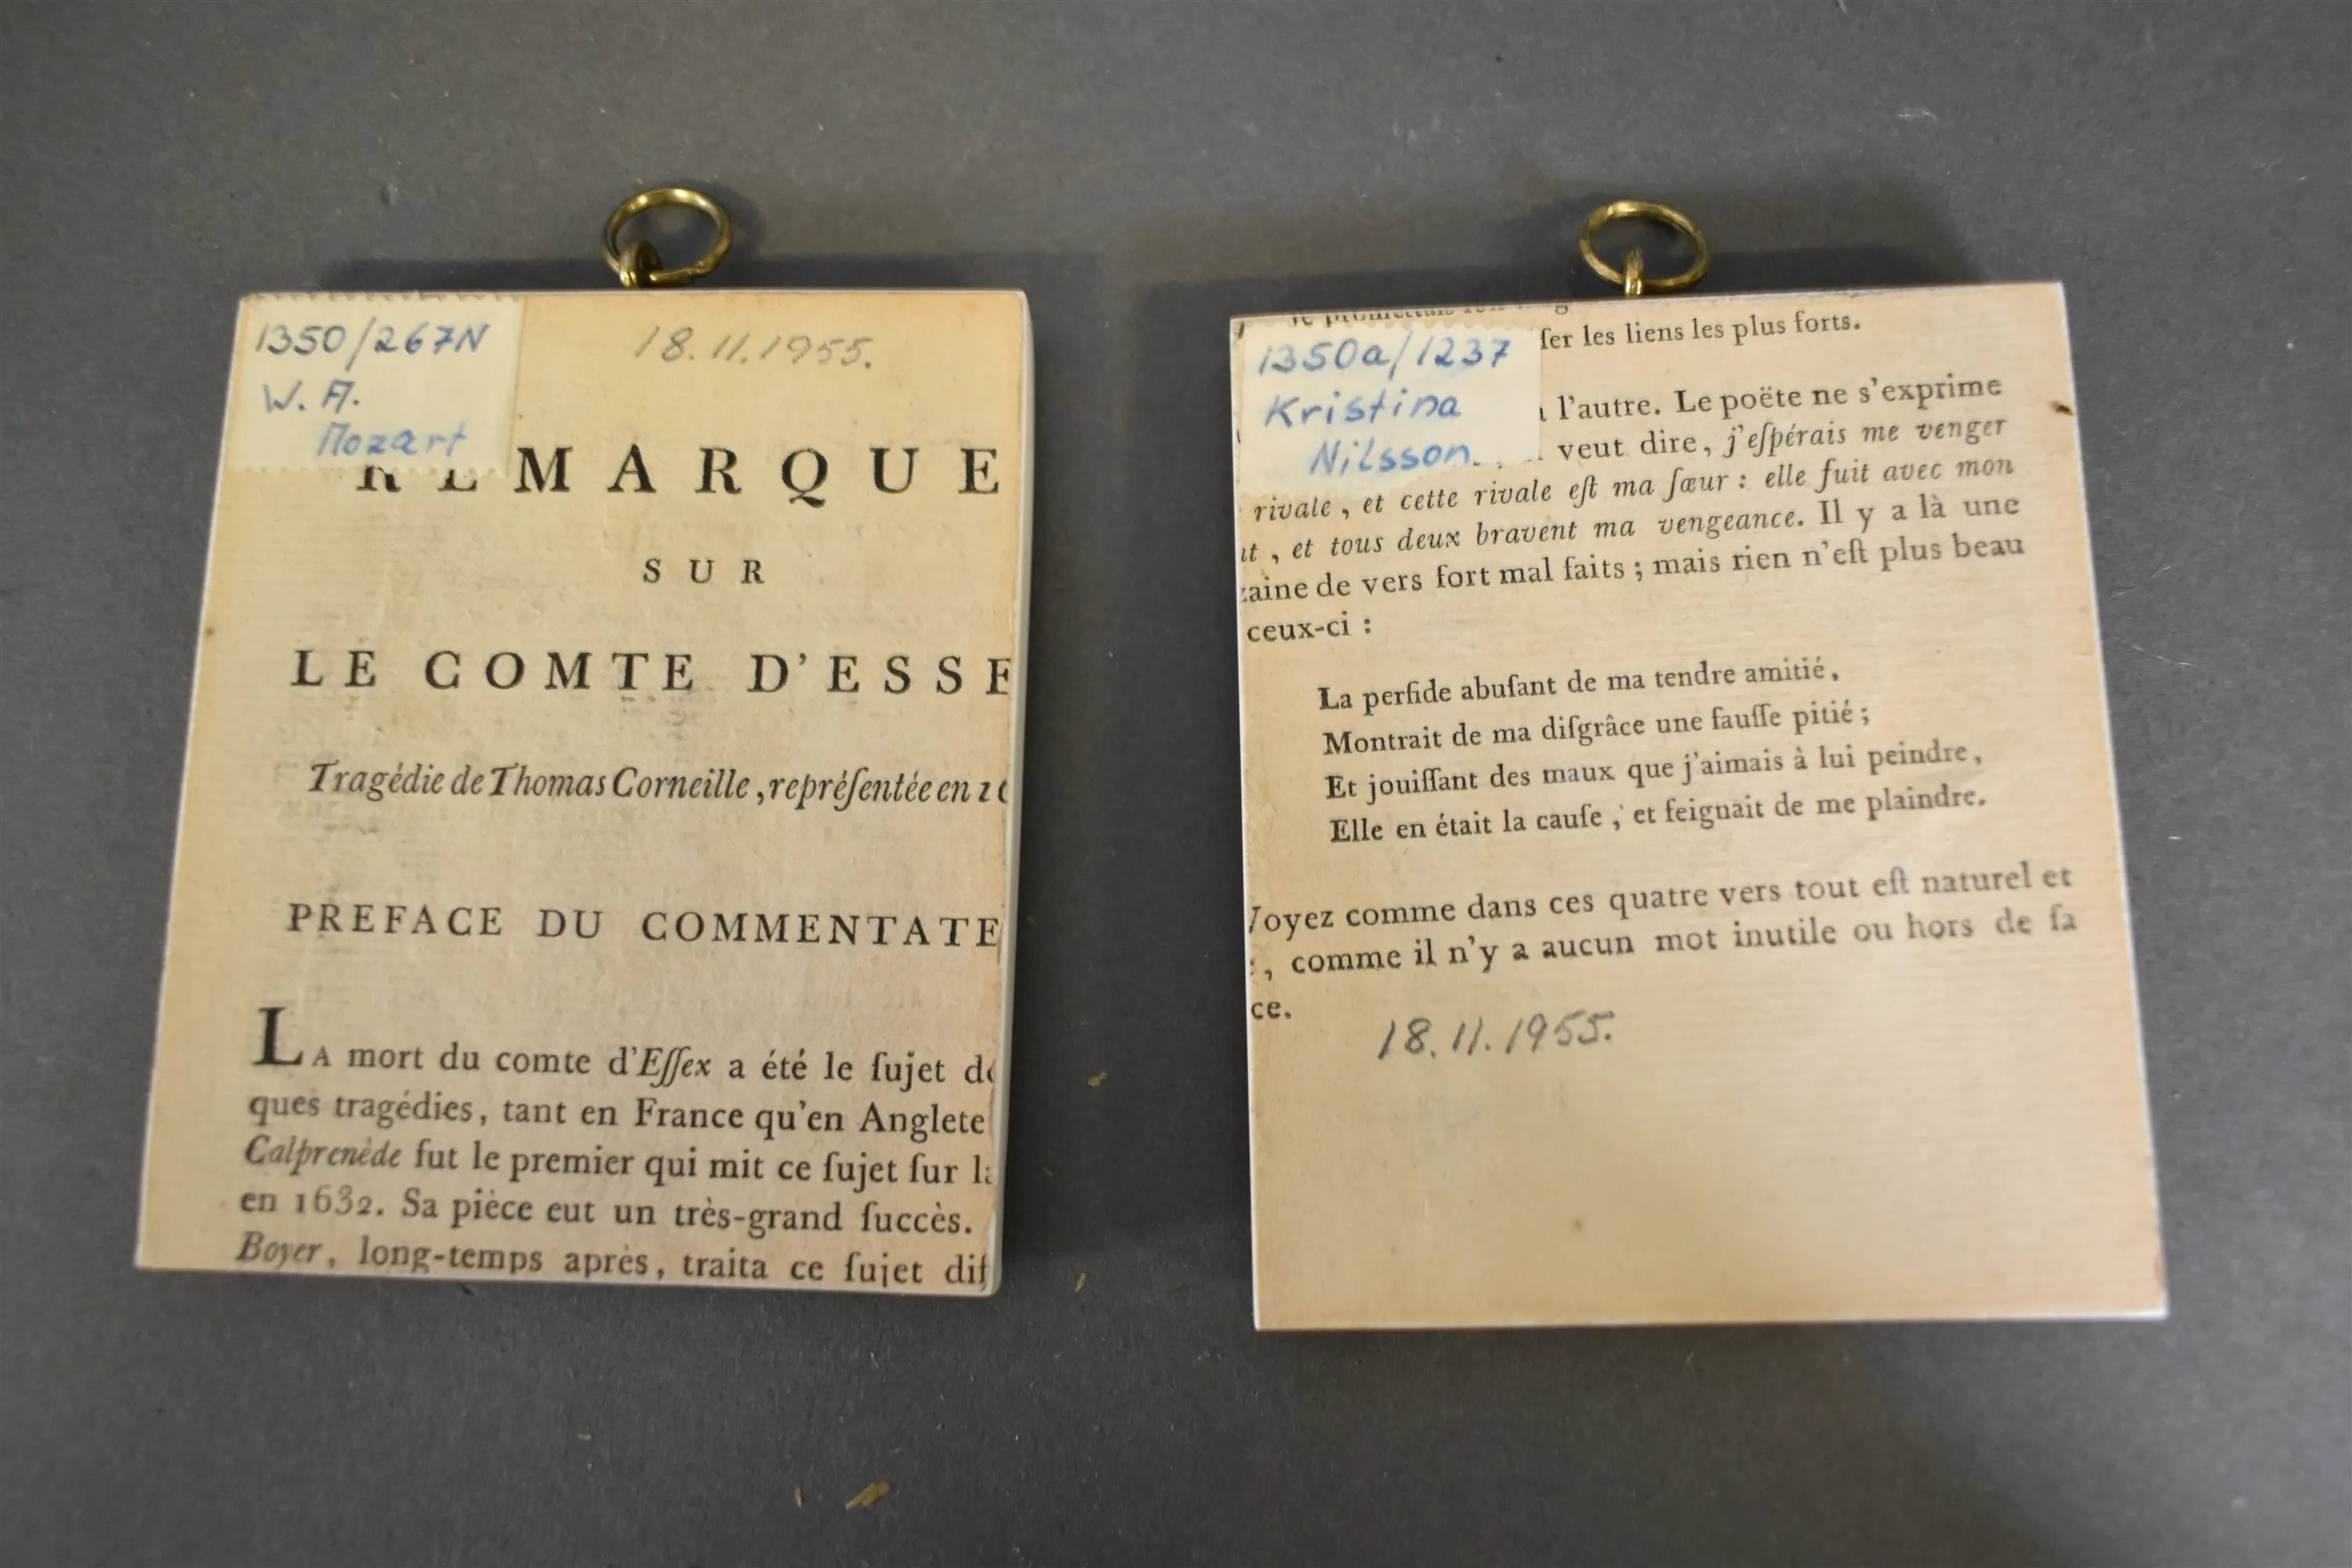 1350/267N
W. A.
Mozart
18.11.1955.
REMARQUE
SUR
LE COMTE D'ESSE
Tragédie de Thomas Corneille, repréſentée en
PREFACE DU COMMENTATE
LA mort du comte d'Eſſex a été le ſujet de
ques tragédies, tant en France qu'en Anglete
Calprenède fut le premier qui mit ce ſujet ſur
en 1632. Sa pièce eut un très-grand ſuccès.
Boyer, long-temps après, traita ce ſujet diſ
1350a/1237
Kristina
Nilsson.
ſer les liens les plus forts.
l'autre. Le poëte ne s'exprime
veut dire, j'eſpérais me venger
rivale, et cette rivale eſt ma ſœur : elle fuit avec mon
, et tous deux bravent ma vengeance. Il y a là une
zaine de vers fort mal faits ; mais rien n'eſt plus beau
ceux-ci :
La perfide abuſant de ma tendre amitié,
Montrait de ma diſgrâce une fauſſe pitié ;
Et jouiſſant des maux que j'aimais à lui peindre,
Elle en était la cauſe, et feignait de me plaindre.
Voyez comme dans ces quatre vers tout eſt naturel et
, comme il n'y a aucun mot inutile ou hors de ſa
ce.
18.11.1955.